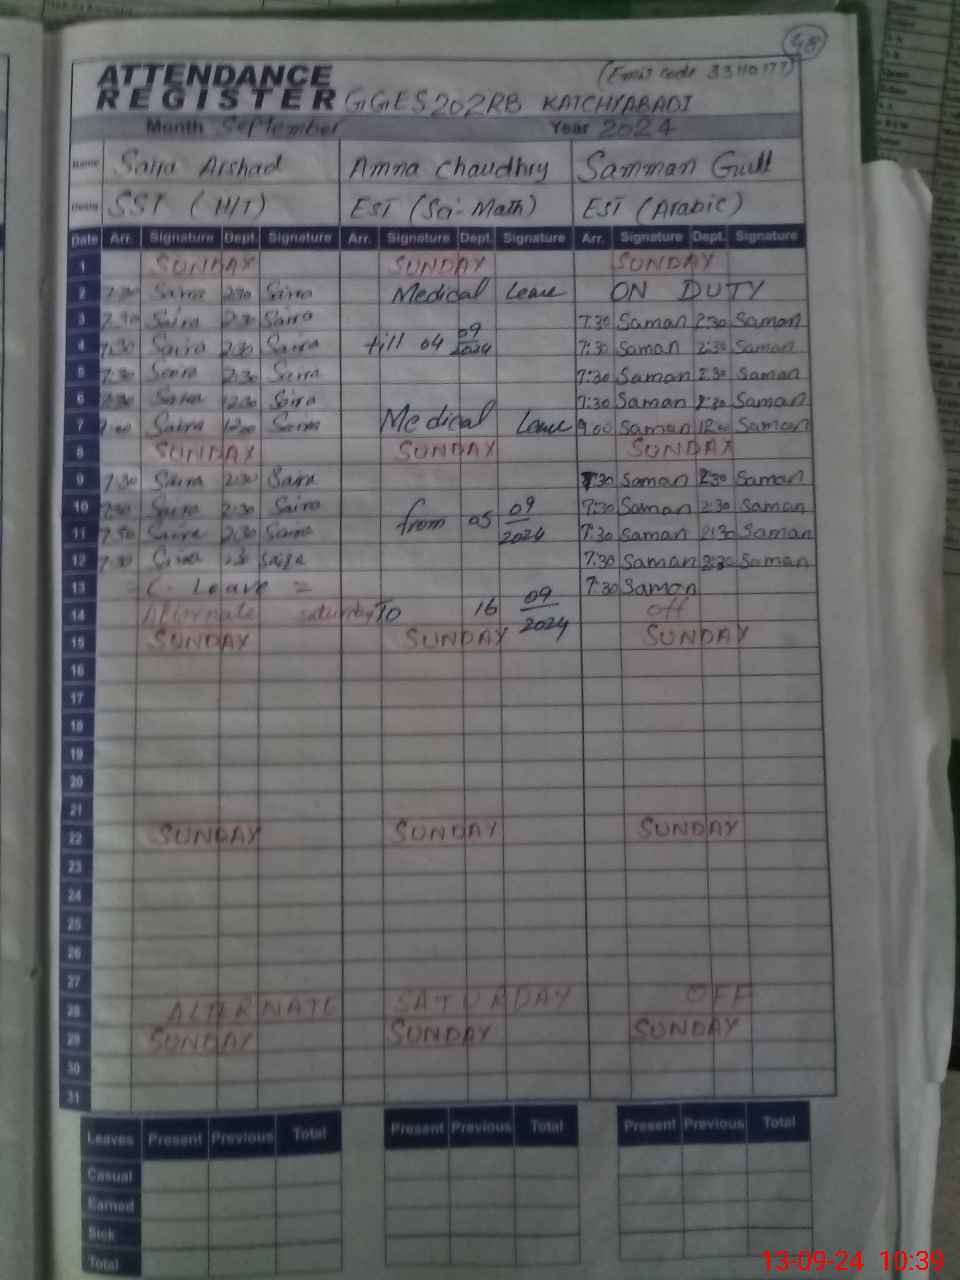 48
(Emis code 33110177)
ATTENDANCE
REGISTER GGES 202RB KATCHYABADI
Month September Year 2024
Name Saira Arshad Amna Chaudhry Samman Gull
Desig SST (H/T) EST (Sci-Math) EST (Arabic)
Date Arr. Signature Dept Signature Arr. Signature Dept. Signature Arr. Signature Dept. Signature
1 SUNDAY SUNDAY SUNDAY
2 7:30 Saira 2:30 Saira Medical Leave ON DUTY
3 7:30 Saira 2:30 Saira 7:30 Saman 2:30 Saman
4 7:30 Saira 2:30 Saira till 04 09/2024 7:30 Saman 2:30 Saman
5 7:30 Saira 2:30 Saira 7:30 Saman 2:30 Saman
6 7:30 Saira 12:00 Saira 7:30 Saman 2:30 Saman
7 Saira 12:00 Saira Medical Leave 9:00 Saman 12:00 Saman
8 SUNDAY SUNDAY SUNDAY
9 7:30 Saira 2:30 Saira 7:30 Saman 2:30 Saman
10 7:30 Saira 2:30 Saira from 05 09/2024 7:30 Saman 2:30 Saman
11 7:30 Saira 2:30 Saira 7:30 Saman 2:30 Saman
12 7:30 Saira 2:30 Saira 7:30 Saman 2:30 Saman
13 = C. Leave = 7:30 Saman
14 Alternate saturday To 16 09/2024 off
15 SUNDAY SUNDAY SUNDAY
16
17
18
19
20
21
22 SUNDAY SUNDAY SUNDAY
23
24
25
26
27
28 ALTERNATE SATURDAY OFF
29 SUNDAY SUNDAY SUNDAY
30
31
Leaves Present Previous Total Present Previous Total Present Previous Total
Casual
Earned
Sick
Total
13-09-24 10:39